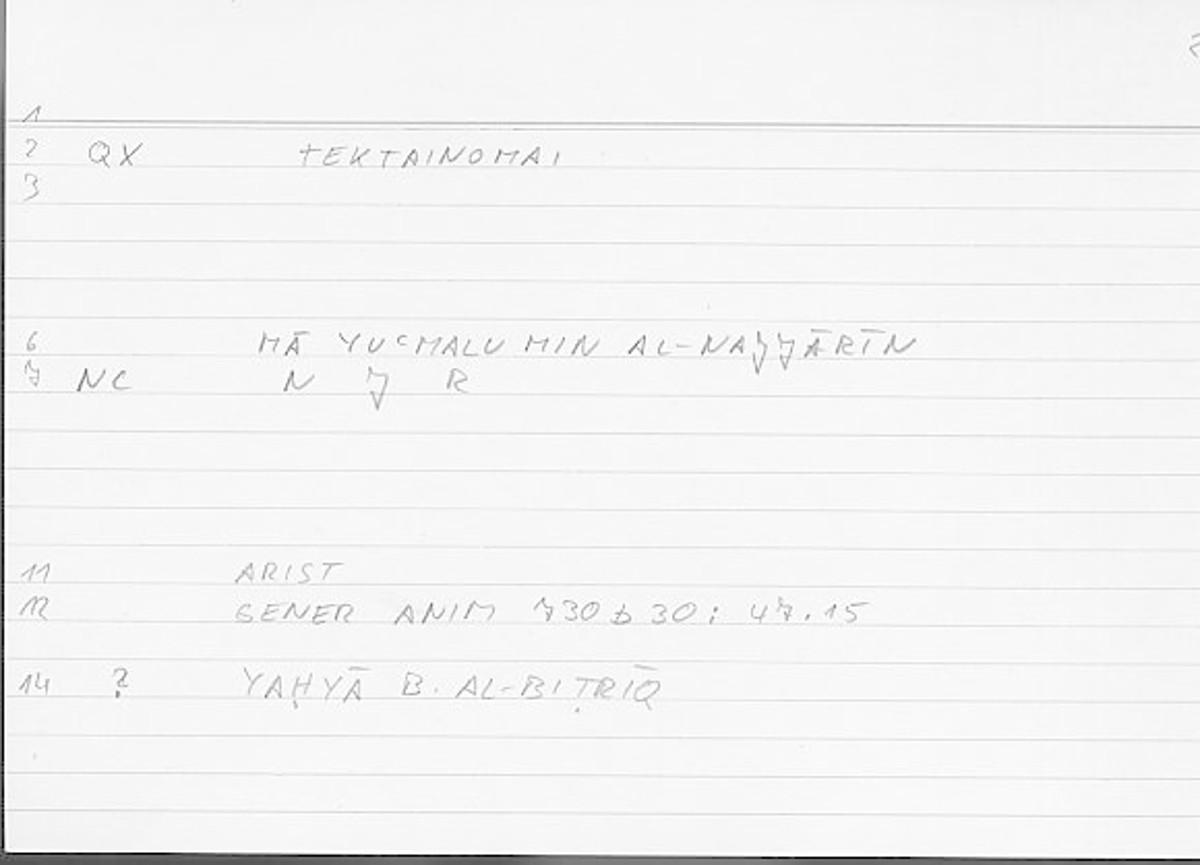 1
2 QX TEKTAINOMAI
3
6 MĀ YUᶜMALU MIN AL-NAJJĀRĪN
7 NC N J R
11 ARIST
12 GENER ANIM 730 b 30 : 47.15
14 ? YAḤYĀ B. AL-BIṬRĪQ